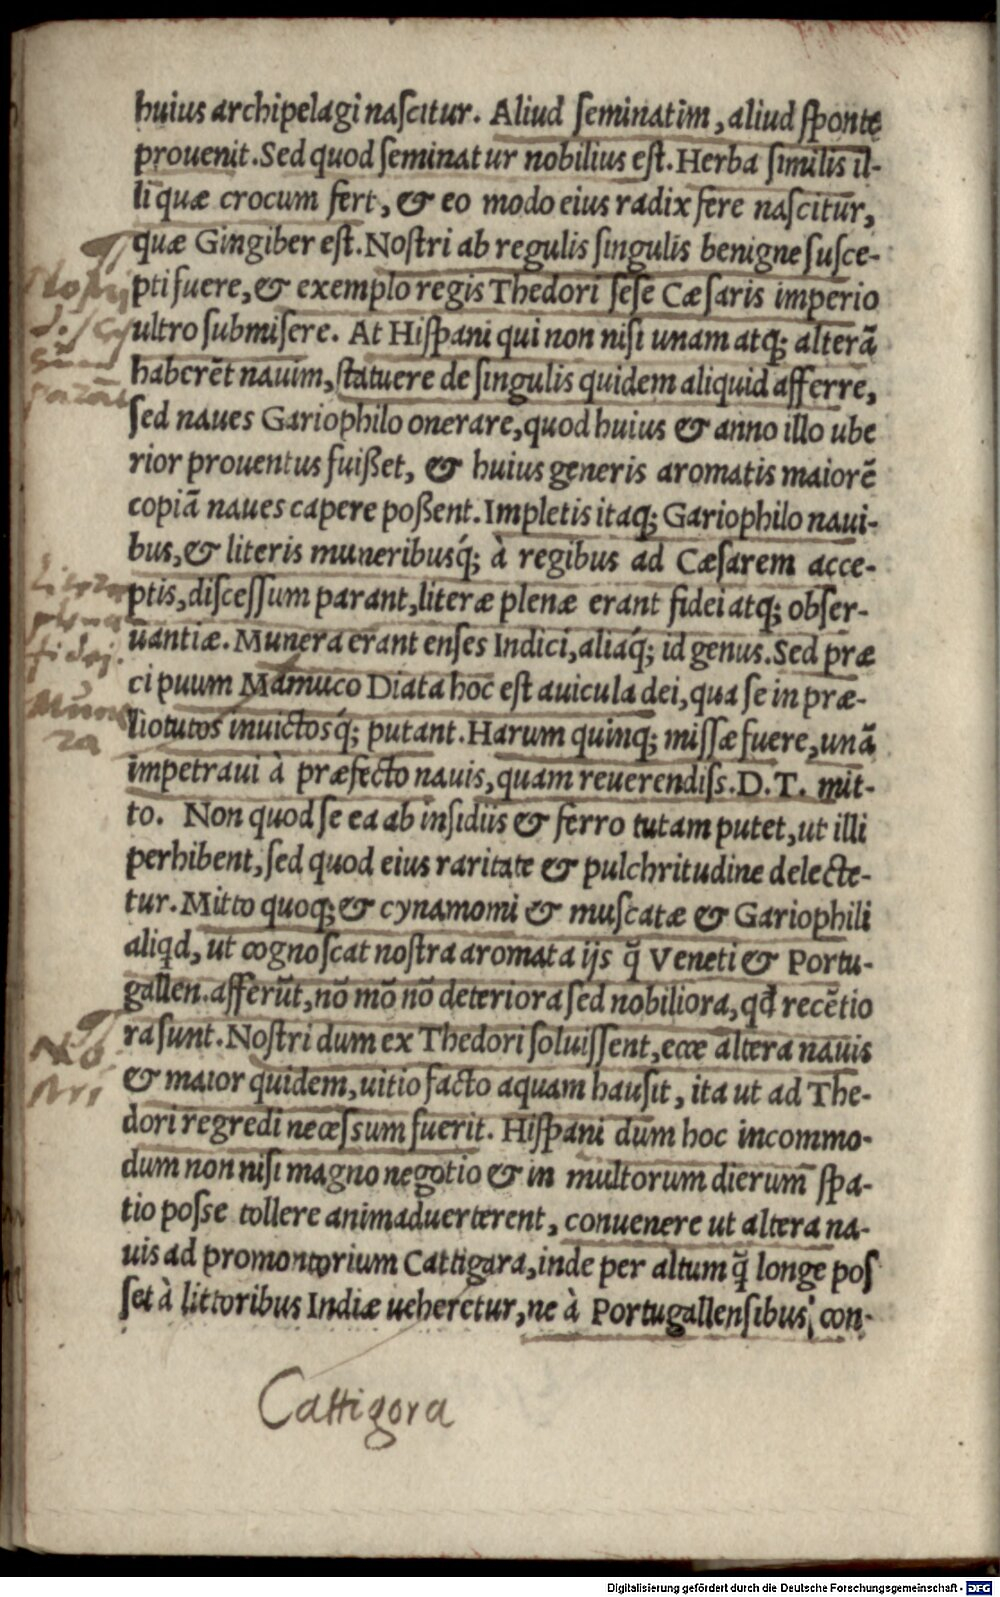 huius archipelagi nascitur. Aliud seminatim, aliud sponte
prouenit. Sed quod seminatur nobilius est. Herba similis il-
li quæ crocum fert, & eo modo eius radix fere nascitur,
quæ Gingiber est. Nostri ab regulis singulis benigne susce-
pti fuere, & exemplo regis Thedori sese Cæsaris imperio
ultro submisere. At Hispani qui non nisi unam atq; alterã
haberẽt nauim, statuere de singulis quidem aliquid afferre,
sed naues Gariophilo onerare, quod huius & anno illo ube
rior prouentus fuißet, & huius generis aromatis maiorẽ
copiã naues capere poßent. Impletis itaq; Gariophilo naui-
bus, & literis muneribusq́; à regibus ad Cæsarem acce-
ptis, discessum parant, literæ plenæ erant fidei atq; obser-
uantiæ. Munera erant enses Indici, aliaq́; id genus. Sed præ
cipuum Mamuco Diata hoc est auicula dei, qua se in præ-
lio tutos inuictosq́; putant. Harum quinq; missæ fuere, unã
impetraui à præfecto nauis, quam reuerendiss. D. T. mit-
to. Non quod se ea ab insidiis & ferro tutam putet, ut illi
perhibent, sed quod eius raritate & pulchritudine delecte-
tur. Mitto quoq; & cynamomi & muscatæ & Gariophili
aliqd, ut cognoscat nostra aromata ijs q̃ Veneti & Portu-
gallen. afferũt, nõ mõ nõ deteriora sed nobiliora, qđ recẽtio
ra sunt. Nostri dum ex Thedori soluissent, ecce altera nauis
& maior quidem, uitio facto aquam hausit, ita ut ad The-
dori regredi necessum fuerit. Hispani dum hoc incommo-
dum non nisi magno negotio & in multorum dierum spa-
tio posse tollere animaduerterent, conuenere ut altera na-
uis ad promontorium Cattigara, inde per altum q̃ longe pos
set à littoribus Indiæ ueheretur, ne à Portugallensibus, con-
Litere
plenæ
fidei.
Mune
ra
No
stri
Cattigora
Digitalisierung gefördert durch die Deutsche Forschungsgemeinschaft - DFG